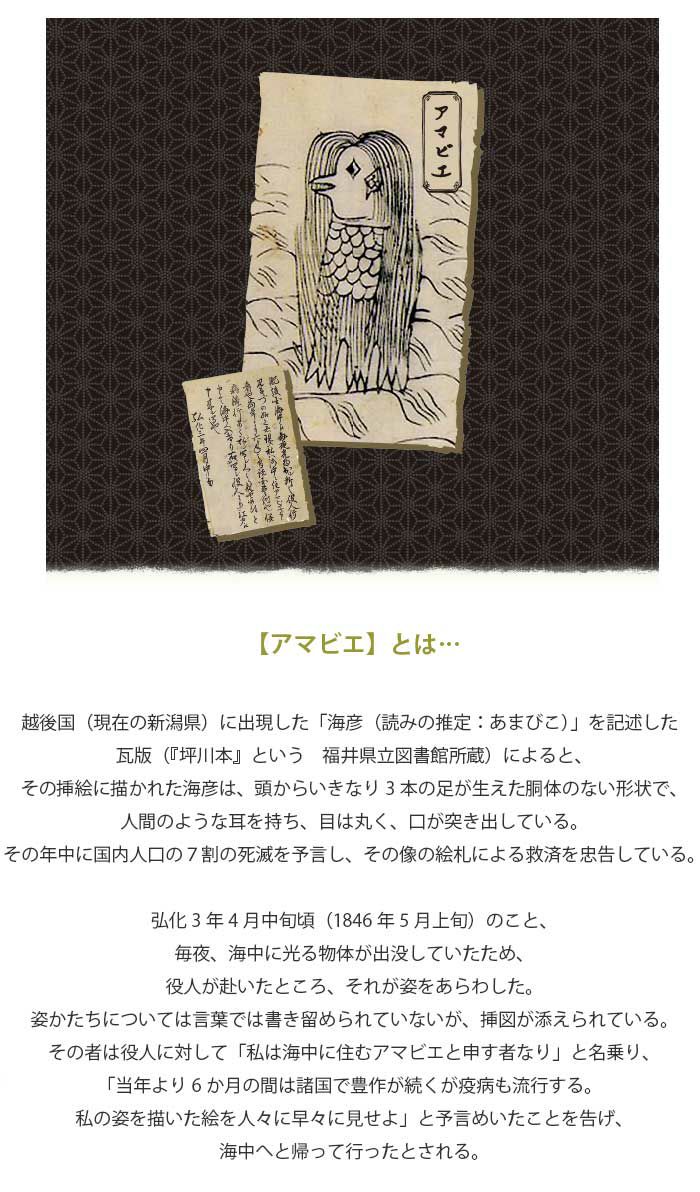 アマビエ
弘化三年四月中旬
【アマビエ】とは…
越後国（現在の新潟県）に出現した「海彦（読みの推定：あまびこ）」を記述した
瓦版（『坪川本』という　福井県立図書館所蔵）によると、
その挿絵に描かれた海彦は、頭からいきなり3本の足が生えた胴体のない形状で、
人間のような耳を持ち、目は丸く、口が突き出している。
その年中に国内人口の７割の死滅を予言し、その像の絵札による救済を忠告している。
弘化3年4月中旬頃（1846年5月上旬）のこと、
毎夜、海中に光る物体が出没していたため、
役人が赴いたところ、それが姿をあらわした。
姿かたちについては言葉では書き留められていないが、挿図が添えられている。
その者は役人に対して「私は海中に住むアマビエと申す者なり」と名乗り、
「当年より6か月の間は諸国で豊作が続くが疫病も流行する。
私の姿を描いた絵を人々に早々に見せよ」と予言めいたことを告げ、
海中へと帰って行ったとされる。